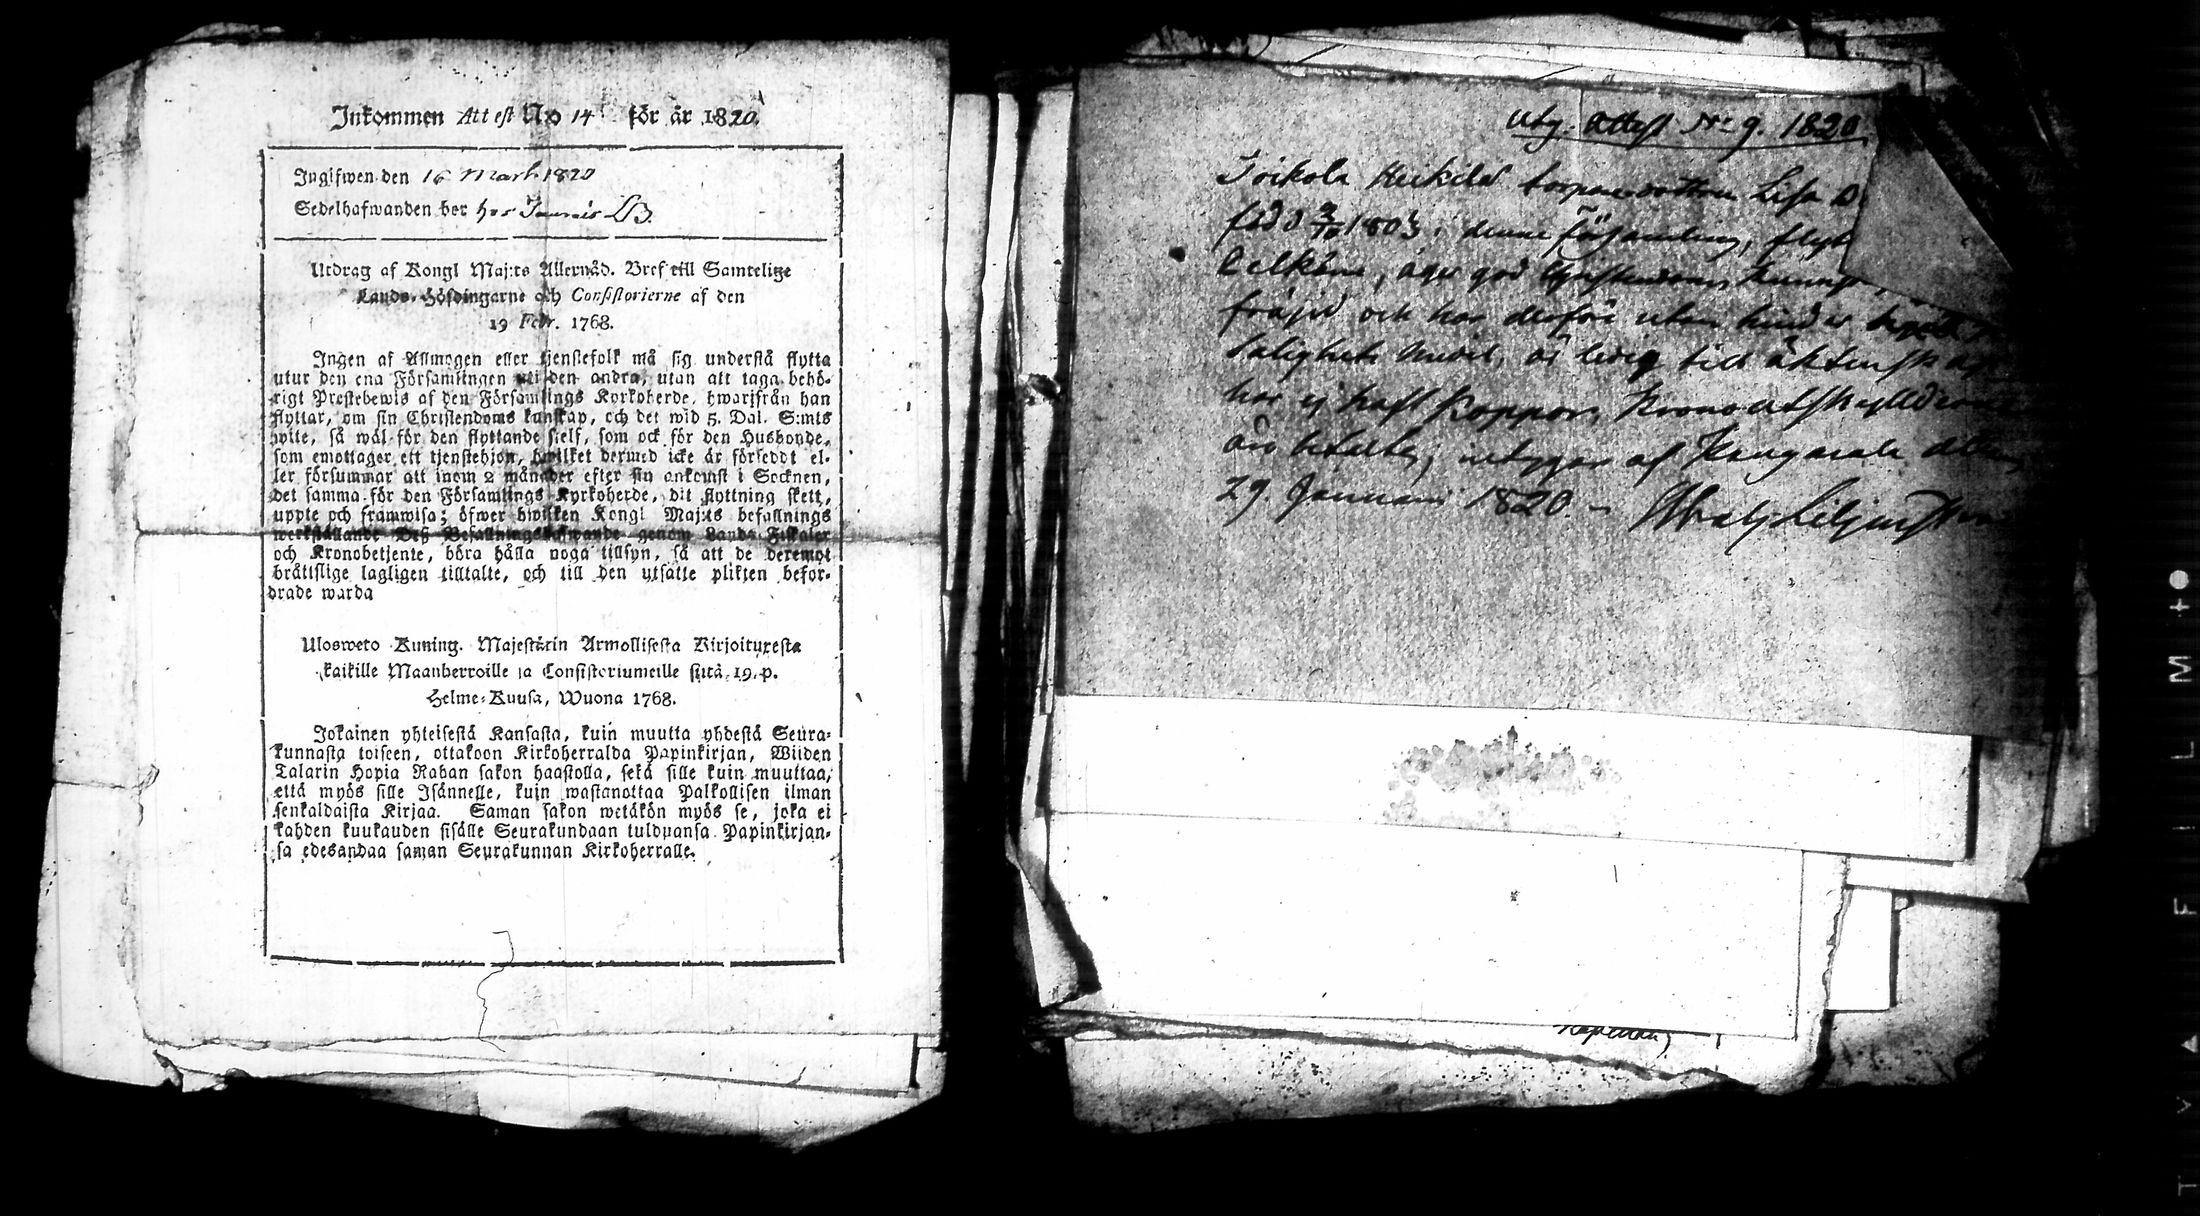 Inkommen Attest No 14 för år 1820.
Ingifwen den 16 Mart. 1820
Sedelhafwanden bor hos
Utdrag af Kongl Maj:ts Allernåd. Bref till Samtelige
Lands-Höfdingarne och Consistorierne af den
19 Febr. 1768.
Ingen af Allmogen eller tjenstefolk må sig understå flytta
utur den ena Församlingen uti den andra, utan att taga behö-
rigt Prestebewis af den Församlings Kyrkoherde, hwarifrån han
flyttar, om sin Christendoms kunskap, och det wid 5. Dal. S:mts
wite, så wäl för den flyttande sielf, som ock för den Husbonde,
som emottager ett tjenstehjon, hwilket dermed icke är försedt el-
ler försummar att inom 2 månader efter sin ankomst i Socknen,
det samma för den Församlings Kyrkoherde, dit flyttning skett,
uppte och framwisa; öfwer hwilken Kongl Maj:ts befallnings
werkställande Deß Befallningshafwande genom Lands Fiskaler
och Kronobetjente, böra hålla noga tillsyn, så att de deremot
brättslige lagligen tilltalte, och till den utsatte plikten befor-
drade warda
Ulosweto Kuning. Majestätin Armollisesta Kirjoituxesta
kaikille Maanherroille ja Consistoriumeille siitä 19. p.
Helme-Kuusa, Wuona 1768.
Jokainen yhteisestä Kansasta, kuin muutta yhdestä Seura-
kunnasta toiseen, ottakoon Kirkoherralda Papinkirjan, Wiiden
Talarin Hopia Rahan sakon haastolla, sekä sille kuin muuttaa,
että myös sille Isännelle, kuin wastanottaa Palkollisen ilman
senkaldaista Kirjaa. Saman sakon wetäkön myös se, joka ei
kahden kuukauden sisälle Seurakundaan tulduansa Papinkirjan-
sa edesandaa saman Seurakunnan Kirkoherralle.
utg. Attest No 9. 1820
Toikola Heikkilä torpare dottren Lisa
född 1803 i denne Församling, flyt
äger god Christendoms kunsk
fräjd och har derföre utan hinder
Salighets medel, är ledig till äktenskap
har ej haft koppor, Kronoutskylderna
års betalta, intygar af Kangasala den
29 Januarii 1820.
Kapellan,
T V A F I L M